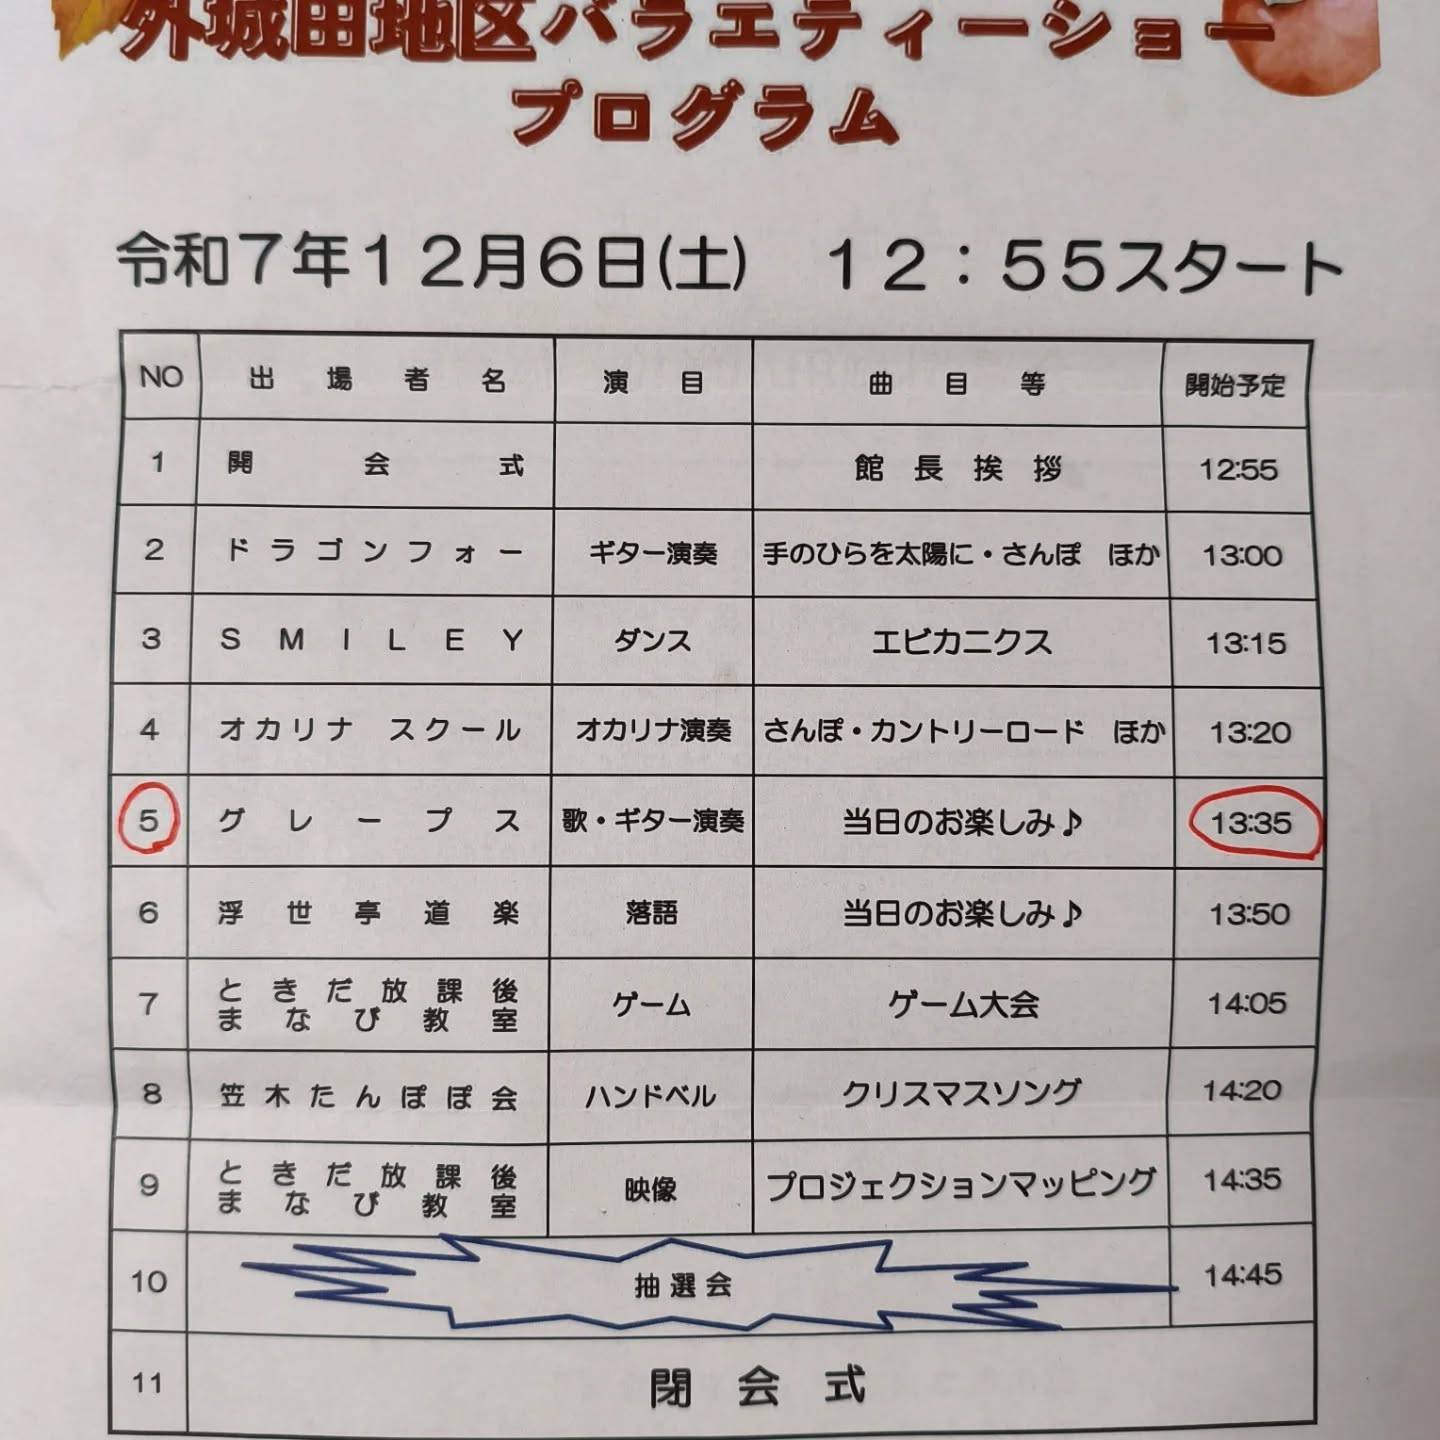 外城田地区バラエティーショー
プログラム
令和7年12月6日(土)　12：55スタート
NO 出場者名 演目 曲目等 開始予定
1 開会式 館長挨拶 12:55
2 ドラゴンフォー ギター演奏 手のひらを太陽に・さんぽ　ほか 13:00
3 SMILEY ダンス エビカニクス 13:15
4 オカリナ スクール オカリナ演奏 さんぽ・カントリーロード　ほか 13:20
5 グレープス 歌・ギター演奏 当日のお楽しみ♪ 13:35
6 浮世亭道楽 落語 当日のお楽しみ♪ 13:50
7 ときだ放課後 ゲーム ゲーム大会 14:05
まなび教室
8 笠木たんぽぽ会 ハンドベル クリスマスソング 14:20
9 ときだ放課後 映像 プロジェクションマッピング 14:35
まなび教室
10 抽選会 14:45
11 閉会式